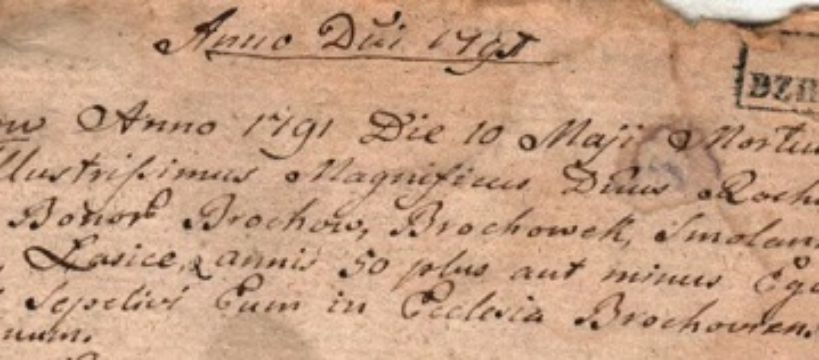 Anno Dni 1791
DZI
Anno 1791 Die 10 Maji Mortuu
llustrissimus Magnificus Dnus Roch
Bonor Brochow, Brochowek, Smolan
Lasice, annis 50 plus aut minus Ego
Sepelivi Eum in Ecclesia Brochovien.
num.